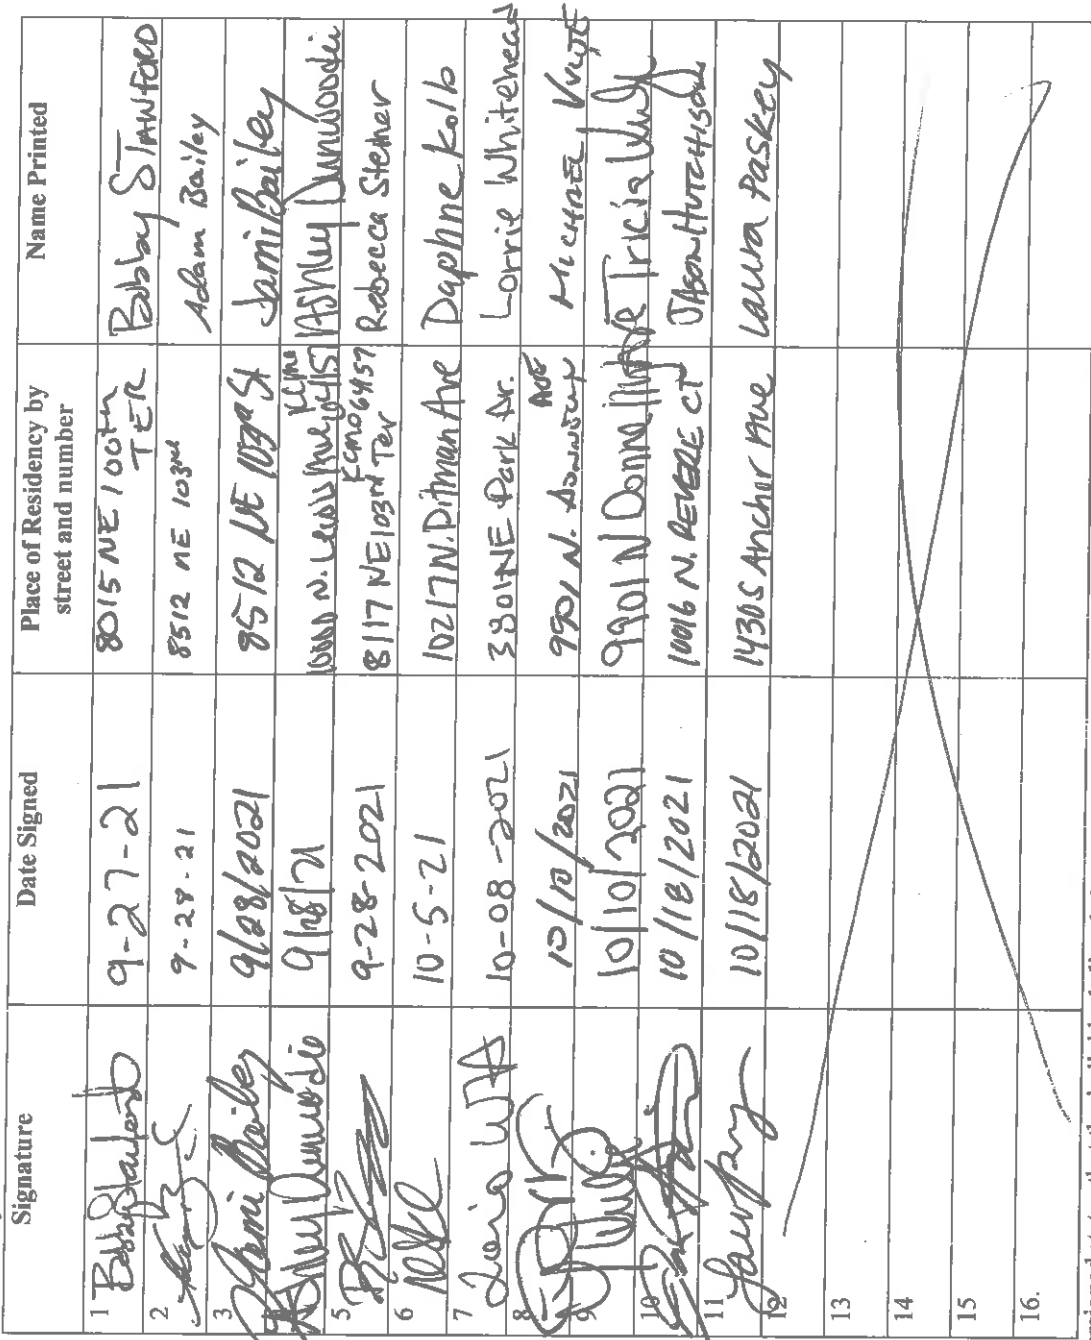 Signature Date Signed Place of Residency by street and number Name Printed
1 Bobby Stanford 9-27-21 8015 NE 100th TER Bobby STANFORD
2 9-28-21 8512 NE 103rd Adam Bailey
3 Jami Bailey 9/28/2021 8512 NE 103rd St Jami Bailey
4 Ashley Dunwoodie 9/28/21 10000 N. Lewis Ave KCMO 64157 Ashley Dunwoodie
5 9-28-2021 8117 NE 103rd Ter KCMO 64157 Rebecca Stether
6 10-5-21 10217 N. Pitman Ave Daphne Kolb
7 10-08-2021 3801 NE Park Dr. Lorrie Whitehead
8 10/10/2021 9901 N. Ave MICHAEL
9 10/10/2021 9901 N Donnelly Ave Tricia
10 10/18/2021 10016 N. REVERE CT JASON HUTCHISON
11 10/18/2021 14305 Anchor Ave Laura Paskey
12
13
14
15
16.